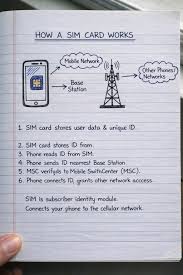 HOW A SIM CARD WORKS
Mobile Network
Other Phones/
Networks
Base
Station
1. SIM card stores user data & unique ID.
2. SIM card stores ID from.
3. Phone reads ID from SIM.
4. Phone sends ID nearest Base Station
5. MSC verifyds to Mobile SwitchCenter (MSC).
6. Phone connects ID, grants other network access.
SIM is subscriber identify module.
Connects your phone to the cellular network.